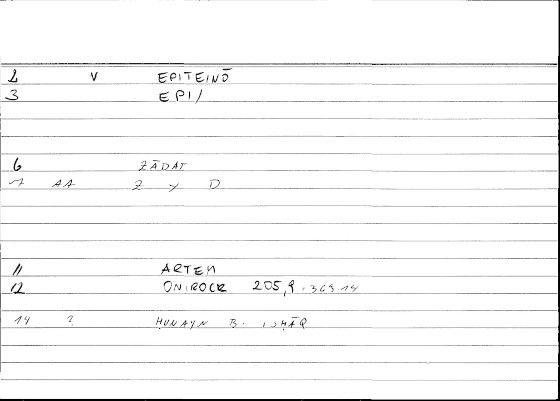 1 V EPITEINŌ
3 EPI/
6 ZĀDAT
7 AA Z Y D
11 ARTEM
12 ONIROCR 205,9 - 363.14
14 ? ḤUNAYN B. ISḤĀQ